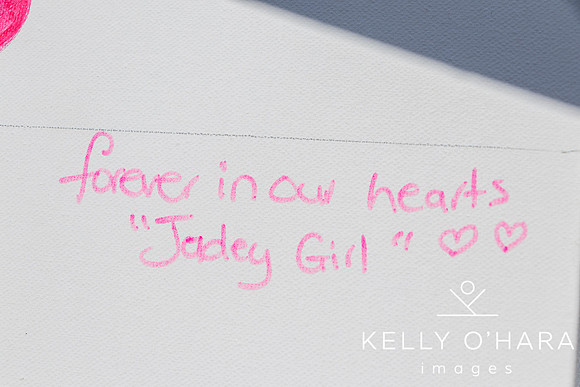 forever in our hearts
"Jadey Girl"
KELLY O'HARA
images